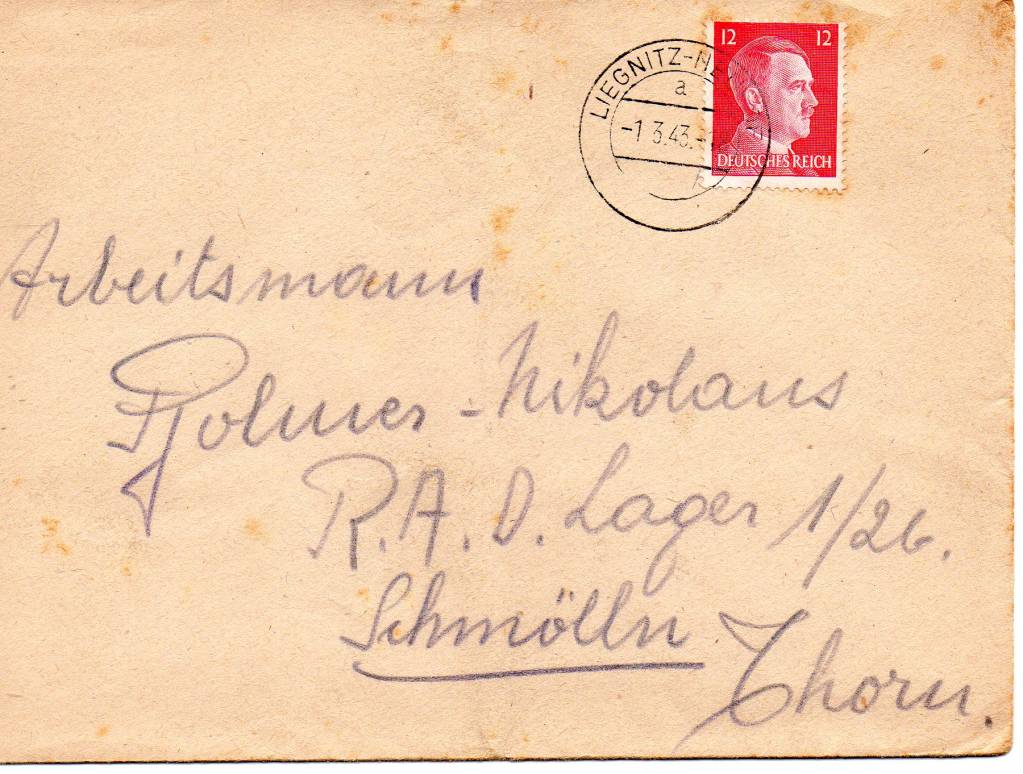 12 12
LIEGNITZ-NE
a
-1.3.43.-
DEUTSCHES REICH
Arbeitsmann
Nikolaus
R.A.D. Lager 1/26.
Schmölln
Thorn.